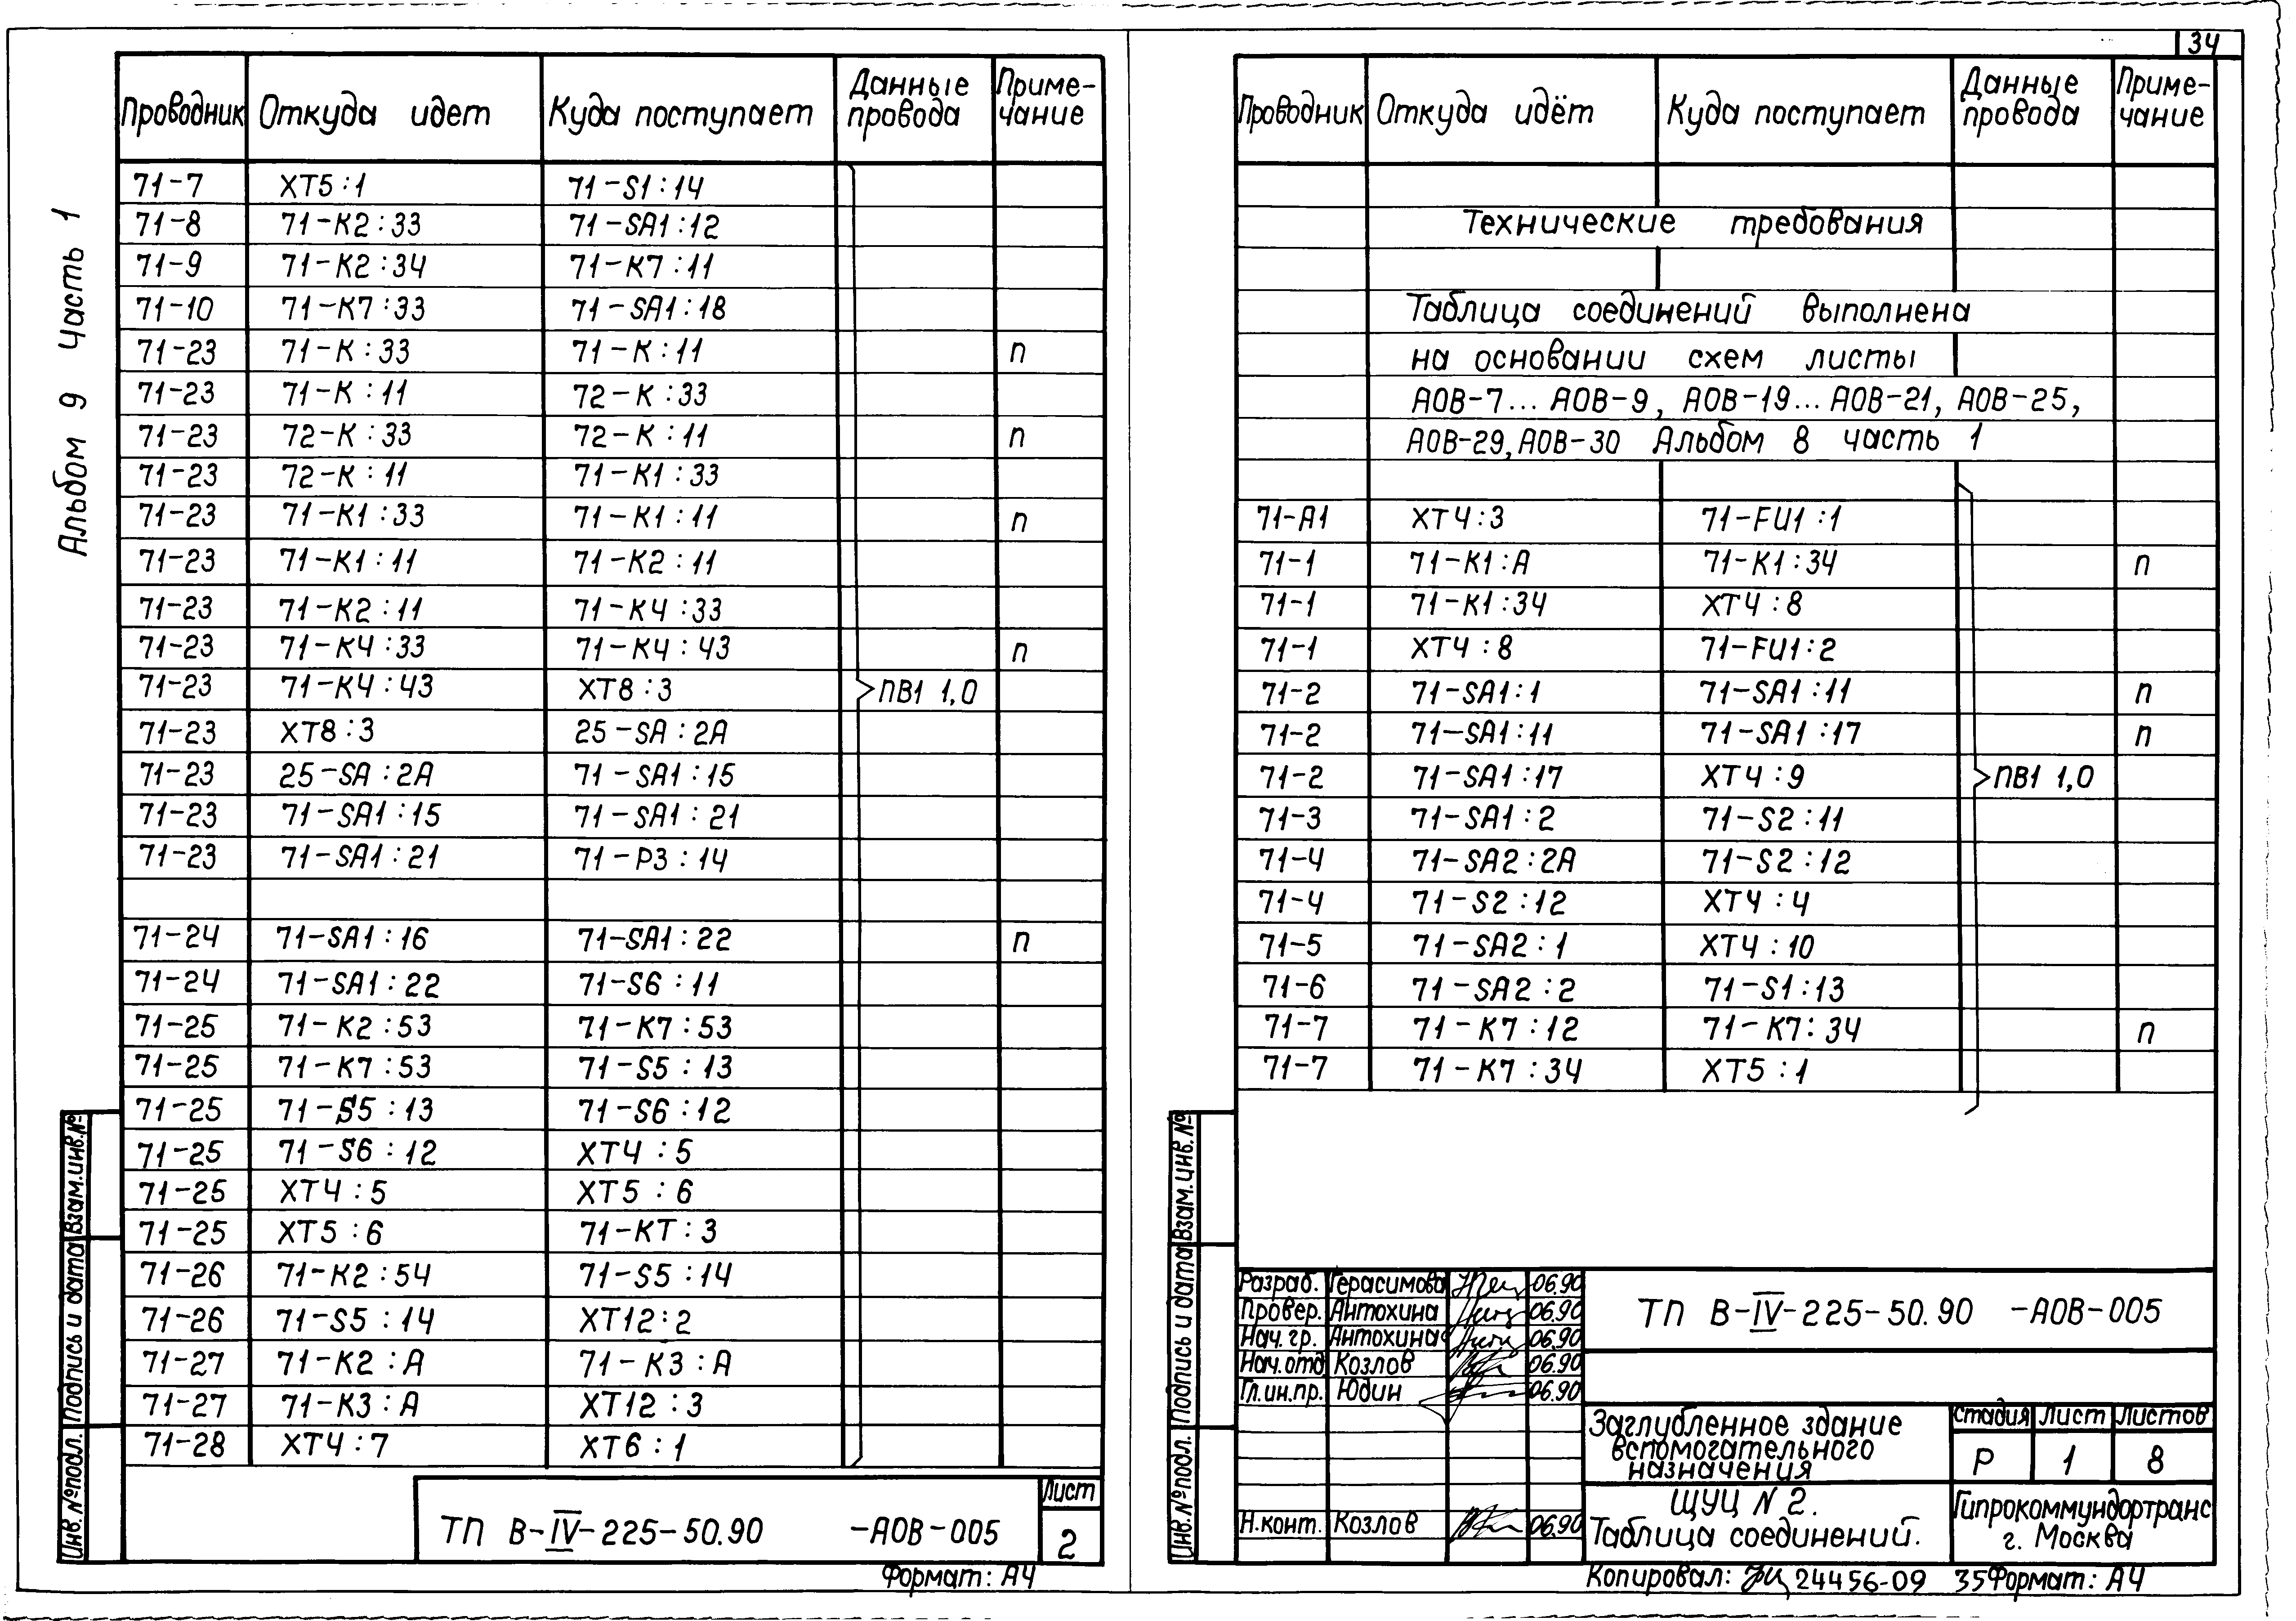 34
Альбом 9 Часть 1
Проводник Откуда идет Куда поступает Данные провода Примечание
71-7 XT5:1 71-S1:14
71-8 71-K2:33 71-SA1:12
71-9 71-K2:34 71-K7:11
71-10 71-K7:33 71-SA1:18
71-23 71-K:33 71-K:11 п
71-23 71-K:11 72-K:33
71-23 72-K:33 72-K:11 п
71-23 72-K:11 71-K1:33
71-23 71-K1:33 71-K1:11 п
71-23 71-K1:11 71-K2:11
71-23 71-K2:11 71-K4:33
71-23 71-K4:33 71-K4:43 п
71-23 71-K4:43 XT8:3 ПВ1 1,0
71-23 XT8:3 25-SA:2A
71-23 25-SA:2A 71-SA1:15
71-23 71-SA1:15 71-SA1:21
71-23 71-SA1:21 71-P3:14
71-24 71-SA1:16 71-SA1:22 п
71-24 71-SA1:22 71-S6:11
71-25 71-K2:53 71-K7:53
71-25 71-K7:53 71-S5:13
71-25 71-S5:13 71-S6:12
71-25 71-S6:12 XT4:5
71-25 XT4:5 XT5:6
71-25 XT5:6 71-KT:3
71-26 71-K2:54 71-S5:14
71-26 71-S5:14 XT12:2
71-27 71-K2:A 71-K3:A
71-27 71-K3:A XT12:3
71-28 XT4:7 XT6:1
Инв.№подл. Подпись и дата Взам.инв.№
ТП В-IV-225-50.90 -АОВ-005
Лист
2
Формат: А4
Проводник Откуда идёт Куда поступает Данные провода Примечание
Технические требования
Таблица соединений выполнена
на основании схем листы
АОВ-7... АОВ-9, АОВ-19... АОВ-21, АОВ-25,
АОВ-29, АОВ-30 Альбом 8 часть 1
71-A1 XT4:3 71-FU1:1
71-1 71-K1:A 71-K1:34 п
71-1 71-K1:34 XT4:8
71-1 XT4:8 71-FU1:2
71-2 71-SA1:1 71-SA1:11 п
71-2 71-SA1:11 71-SA1:17 п
71-2 71-SA1:17 XT4:9 ПВ1 1,0
71-3 71-SA1:2 71-S2:11
71-4 71-SA2:2A 71-S2:12
71-4 71-S2:12 XT4:4
71-5 71-SA2:1 XT4:10
71-6 71-SA2:2 71-S1:13
71-7 71-K7:12 71-K7:34 п
71-7 71-K7:34 XT5:1
Инв.№подл. Подпись и дата Взам.инв.№
Разраб. Герасимова 06.90
Провер. Антохина 06.90
Нач.гр. Антохина 06.90
Нач.отд Козлов 06.90
Гл.ин.пр. Юдин 06.90
Н.конт. Козлов 06.90
ТП В-IV-225-50.90 -АОВ-005
Заглубленное здание
вспомогательного
назначения
Стадия Лист Листов
Р 1 8
ЩУЦ N 2.
Таблица соединений.
Гипрокоммундортранс
г. Москва
Копировал: 24456-09 35 Формат: А4